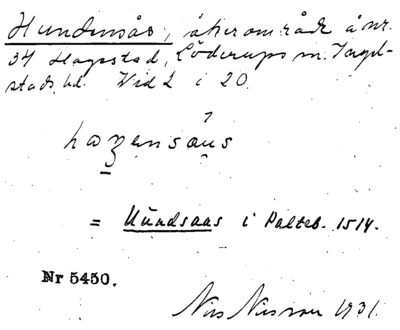 Hundensås, åkerområde å nr.
34 Hagestad, Löderups sn. Ingel-
stads hd. Vid L i 20.
= Hundsaas i Palteb. 1514.
Nr 5450.
Nils Nilsson 1931.